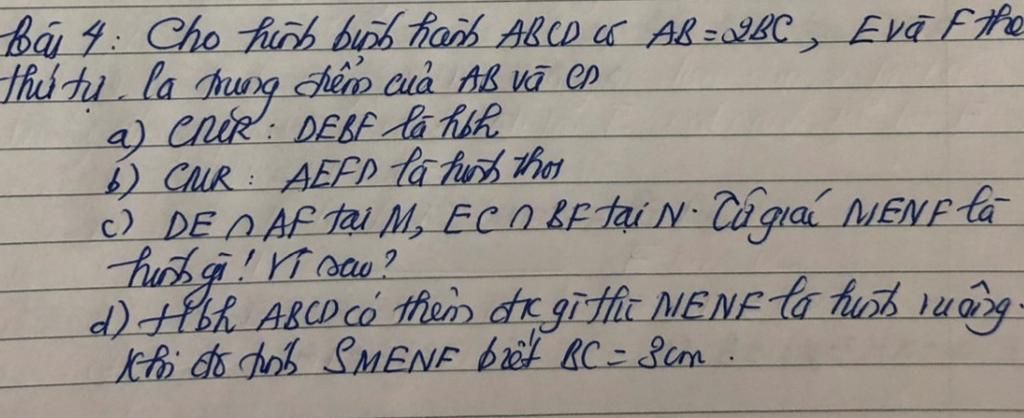 Bài 4: Cho hình bình hành ABCD có AB = 2BC, E và F theo
thứ tự là trung điểm của AB và CD
a) CMR: DEBF là hbh
b) CMR: AEFD là hình thoi
c) DE ∩ AF tại M, EC ∩ BF tại N. Tứ giác MENF là
hình gì! Vì sao?
d) Hbh ABCD có thêm đk gì thì MENF là hình vuông.
Khi đó tính SMENF biết BC = 3cm.